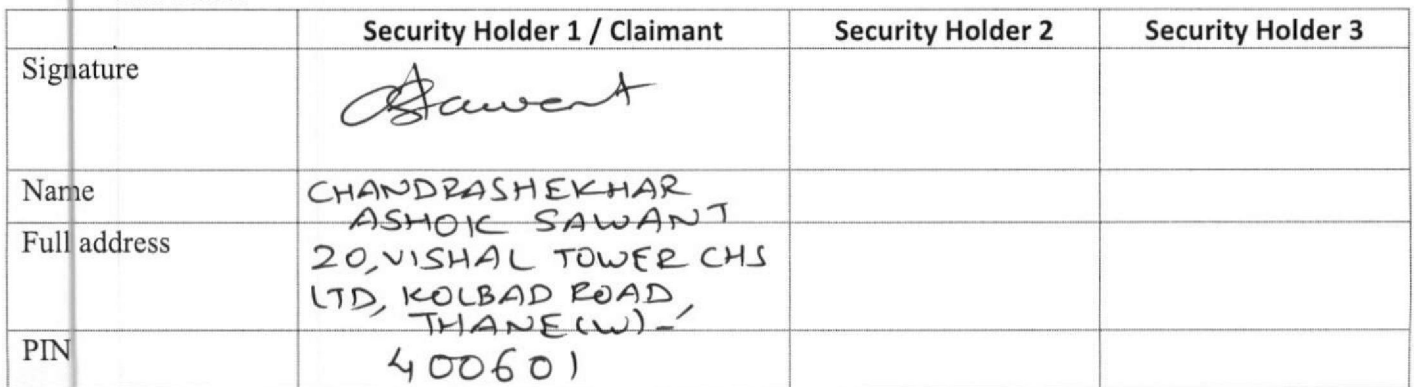 Security Holder 1 / Claimant Security Holder 2 Security Holder 3
Signature
CSawant
Name CHANDRASHEKHAR
ASHOK SAWANT
Full address 20, VISHAL TOWER CHS
LTD, KOLBAD ROAD,
THANE (W) -
PIN 400601